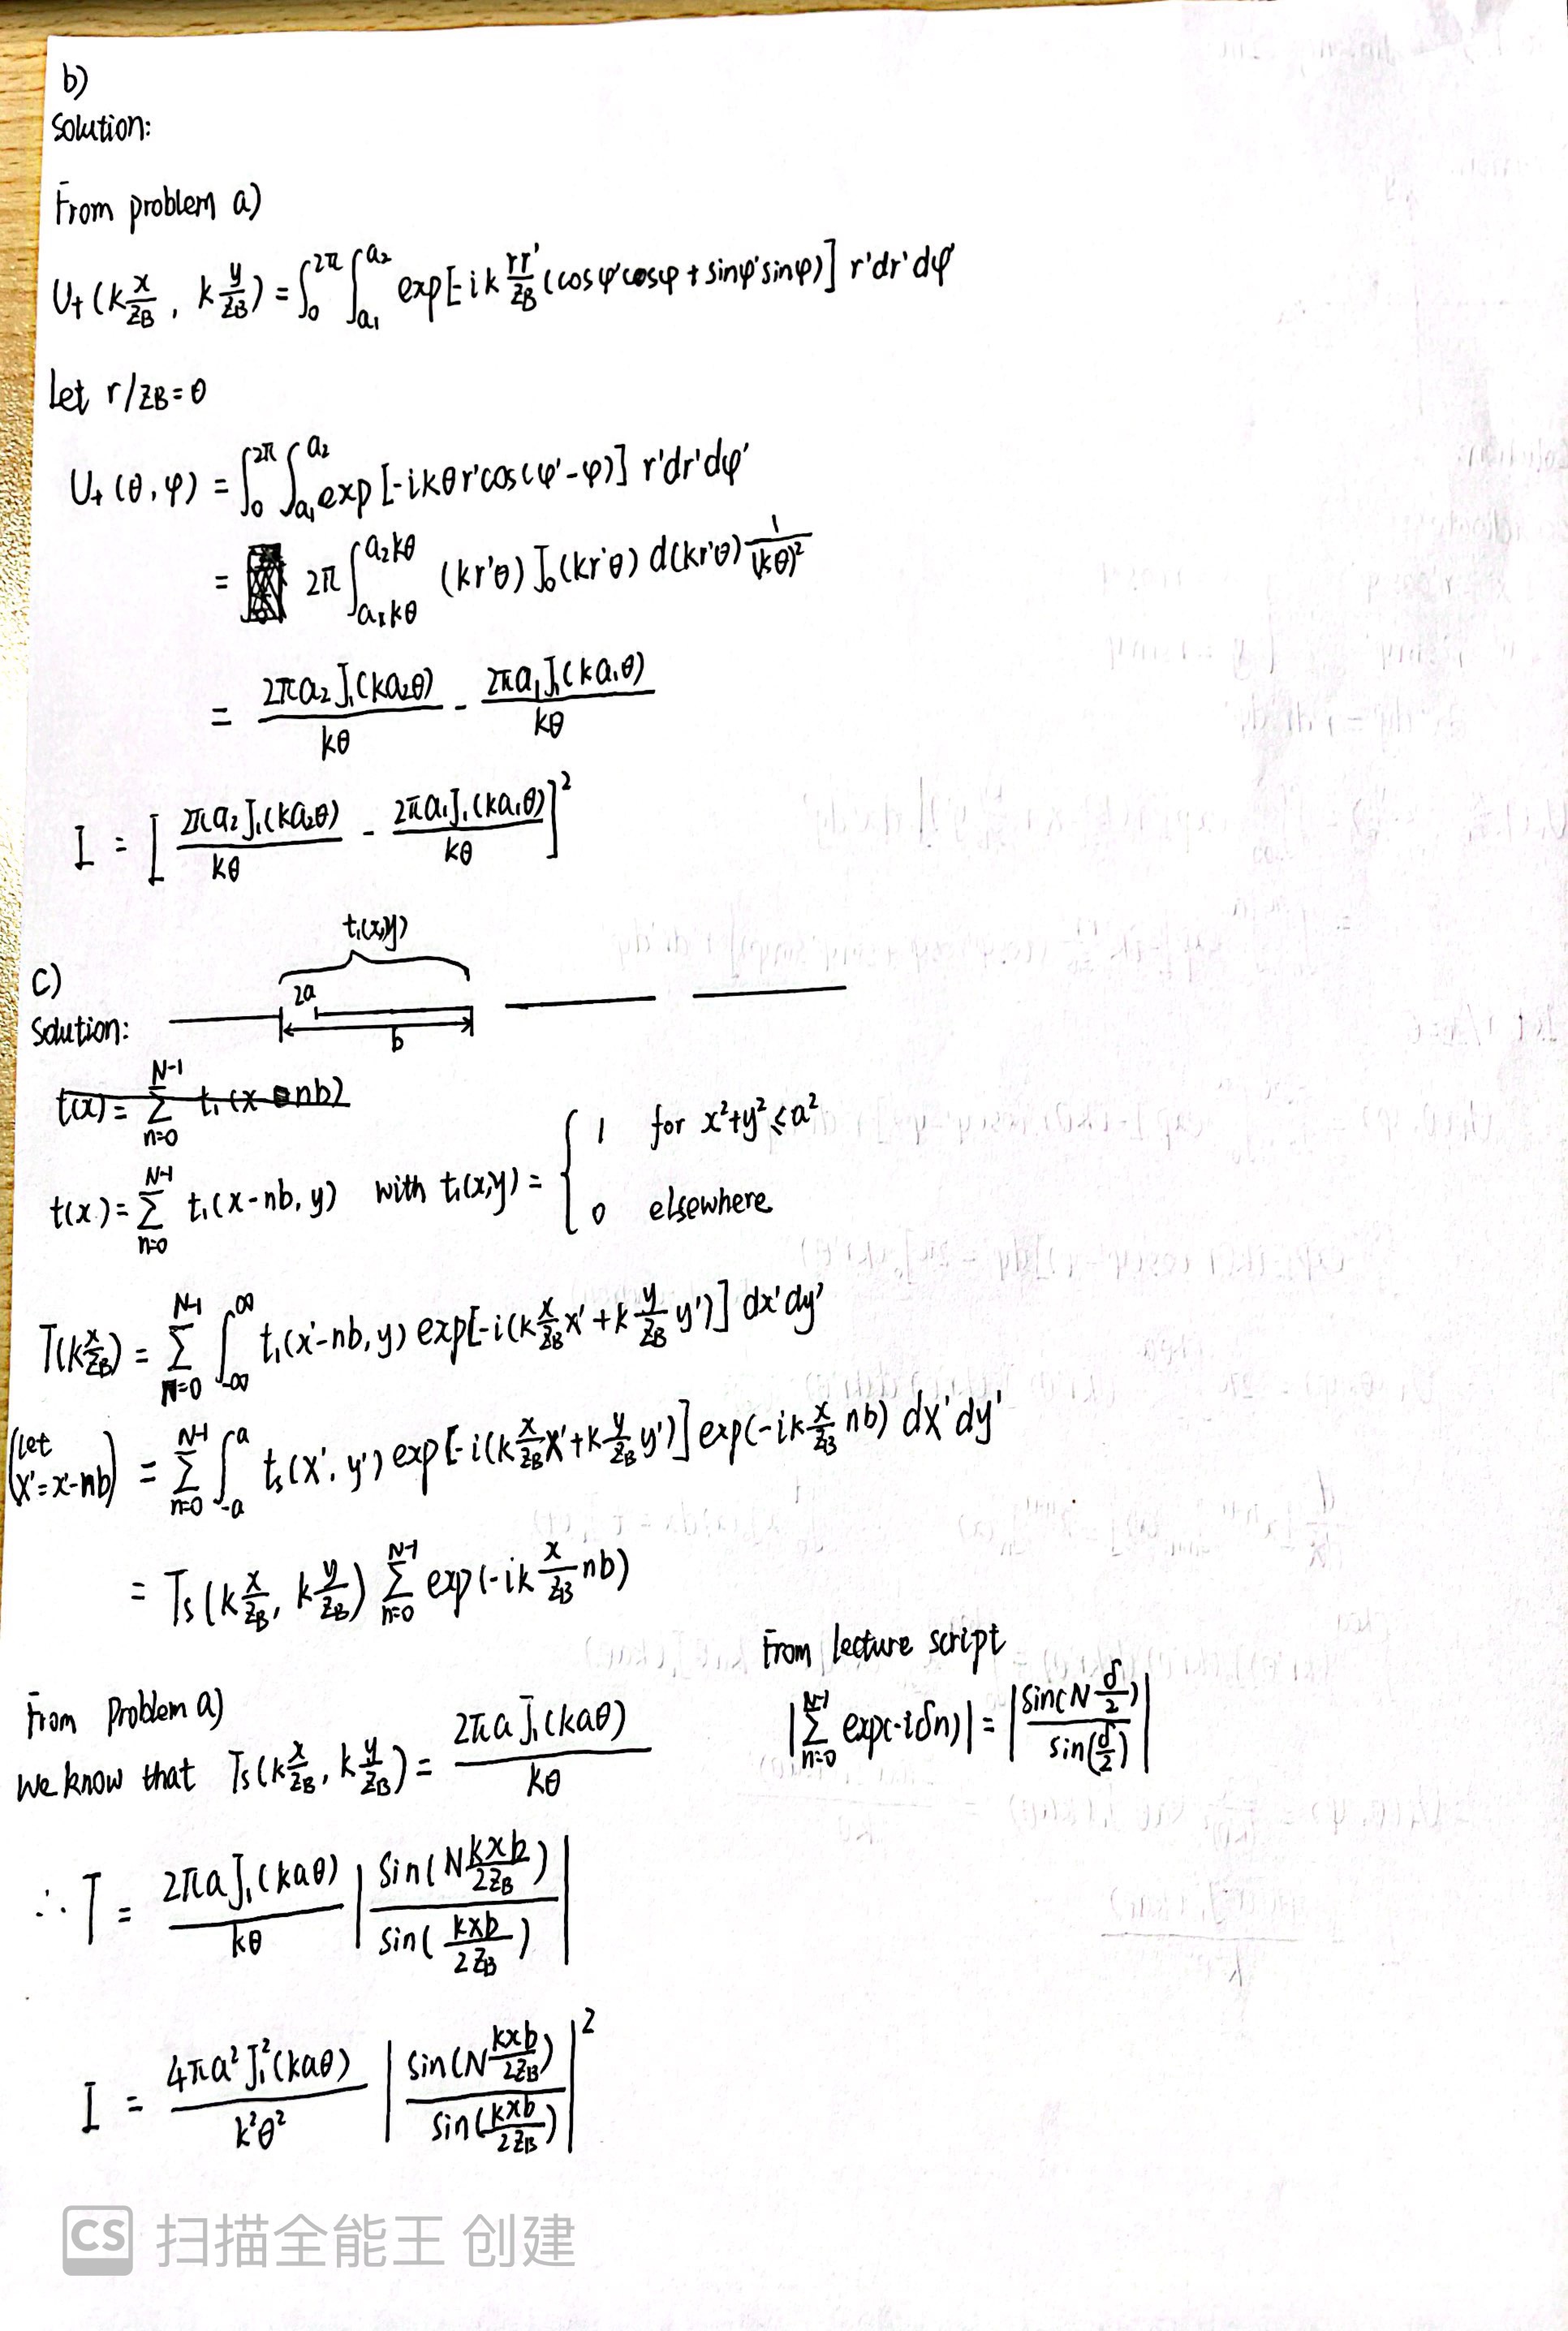 b)
Solution:
From problem a)
U₊(k x/z_B , k y/z_B) = ∫₀^{2π} ∫_{a₁}^{a₂} exp[-ik rr'/z_B (cosφ'cosφ + sinφ'sinφ)] r'dr'dφ'
Let r/z_B = θ
U₊(θ,φ) = ∫₀^{2π} ∫_{a₁}^{a₂} exp[-ikθr'cos(φ'-φ)] r'dr'dφ'
= 2π ∫_{a₁kθ}^{a₂kθ} (kr'θ) J₀(kr'θ) d(kr'θ) 1/(kθ)²
= 2πa₂J₁(ka₂θ)/kθ - 2πa₁J₁(ka₁θ)/kθ
I = [2πa₂J₁(ka₂θ)/kθ - 2πa₁J₁(ka₁θ)/kθ]²
t₁(x,y)
c)
2a
Solution:
b
t(x) = Σ_{n=0}^{N-1} t₁(x nb)
t(x) = Σ_{n=0}^{N-1} t₁(x-nb, y) with t₁(x,y) = { 1 for x²+y² ≤ a²
0 elsewhere
T(k x/z_B) = Σ_{n=0}^{N-1} ∫_{-∞}^{∞} t₁(x'-nb, y) exp[-i(k x/z_B x' + k y/z_B y')] dx'dy'
(let X'=x'-nb) = Σ_{n=0}^{N-1} ∫_{-a}^{a} t_s(X', y') exp[-i(k x/z_B X' + k y/z_B y')] exp(-ik x/z_B nb) dX'dy'
= T_s(k x/z_B, k y/z_B) Σ_{n=0}^{N-1} exp(-ik x/z_B nb)
From lecture script
|Σ_{n=0}^{N-1} exp(-iδn)| = |sin(N δ/2)/sin(δ/2)|
From Problem a)
we know that T_s(k x/z_B, k y/z_B) = 2πa J₁(kaθ)/kθ
∴ T = 2πa J₁(kaθ)/kθ |sin(N kxb/2z_B)/sin(kxb/2z_B)|
I = 4πa² J₁²(kaθ)/k²θ² |sin(N kxb/2z_B)/sin(kxb/2z_B)|²
CS 扫描全能王 创建